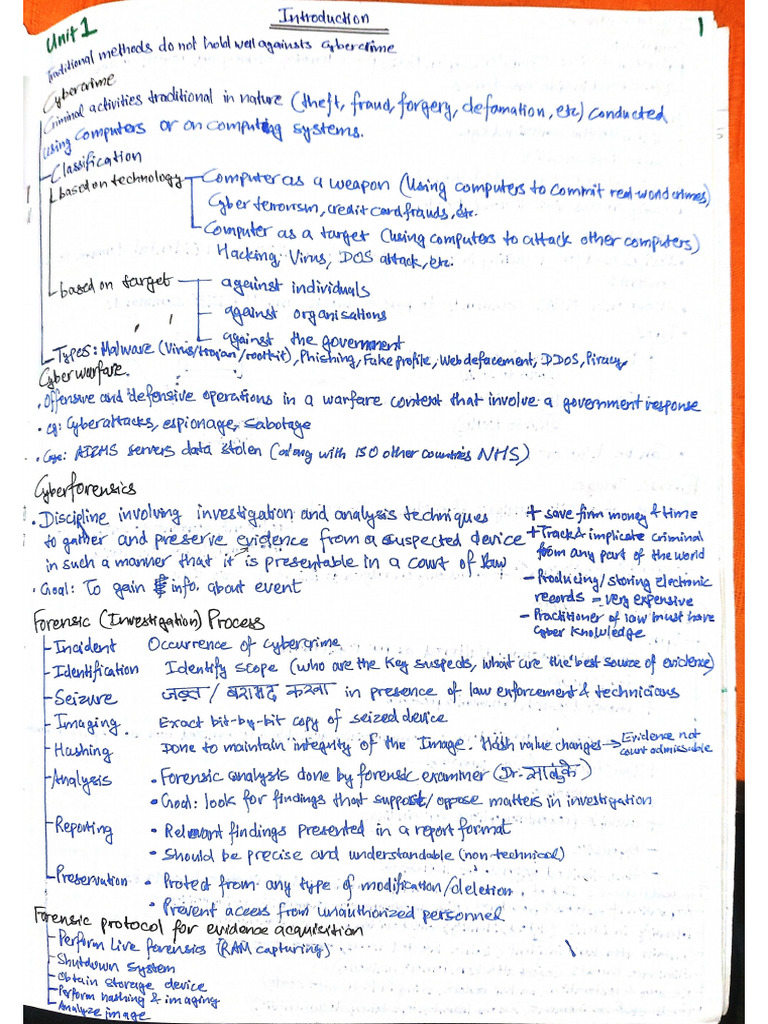 Introduction
Unit 1
1
Traditional methods do not hold well againsts cybercrime
Cybercrime
Criminal activities traditional in nature (theft, fraud, forgery, defamation, etc) conducted
using computers or on computing systems.
Classification
based on technology
Computer as a weapon (Using computers to commit real-world crimes)
Cyber terrorism, credit card frauds, etc.
Computer as a target (using computers to attack other computers)
Hacking, Virus, DOS attack, etc.
based on target
against individuals
against organisations
against the government
Types: Malware (Virus/trojan/rootkit), Phishing, Fake profile, Web defacement, DDOS, Piracy
Cyberwarfare.
• Offensive and defensive operations in a warfare context that involve a government response
• eg: Cyberattacks, espionage, sabotage
• Case: AIIMS servers data stolen (along with 150 other countries NHS)
Cyberforensics
• Discipline involving investigation and analysis techniques
to gather and preserve evidence from a suspected device
in such a manner that it is presentable in a court of law
• Goal: To gain info. about event
+ save firm money & time
+ Track & implicate criminal
from any part of the world
- Producing/storing electronic
records = very expensive
- Practitioner of law must have
Cyber Knowledge
Forensic (Investigation) Process
Incident Occurrence of cybercrime
Identification Identify scope (who are the key suspects, what are the best source of evidence)
Seizure जब्त / बरामद करना in presence of law enforcement & technicians
Imaging Exact bit-by-bit copy of seized device
Hashing Done to maintain integrity of the Image. Hash value changes → Evidence not
court admissable
Analysis • Forensic analysis done by forensic examiner (Dr. सालुंके)
• Goal: look for findings that support/oppose matters in investigation
Reporting • Relevant findings presented in a report format
• Should be precise and understandable (non technical)
Preservation • Protect from any type of modification/deletion.
• Prevent access from unauthorized personnel
Forensic protocol for evidence acquisition
Perform Live forensics (RAM capturing)
Shutdown system
Obtain storage device
Perform hashing & imaging
Analyze image